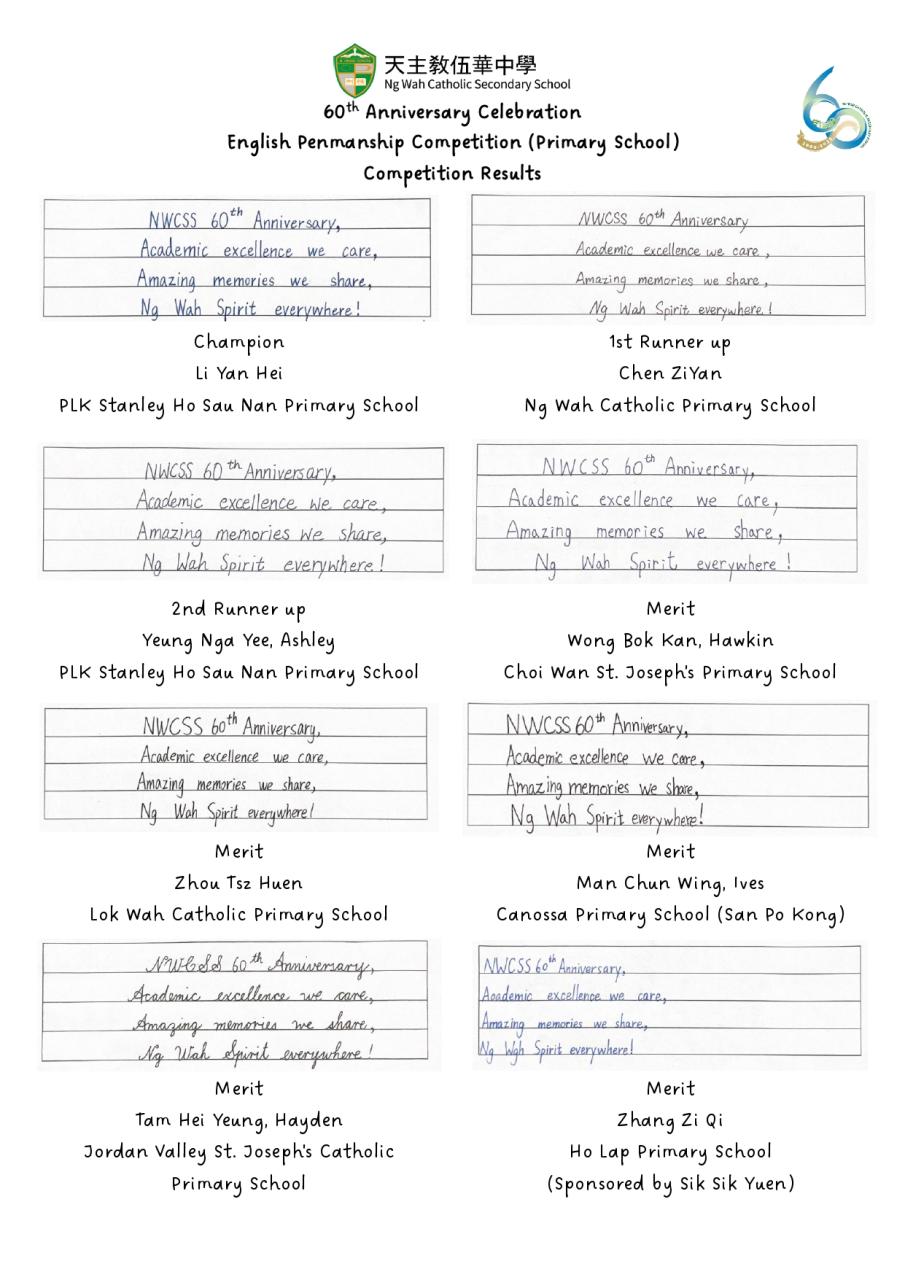 天主教伍華中學
Ng Wah Catholic Secondary School
60th Anniversary Celebration
English Penmanship Competition (Primary School)
Competition Results
NWCSS 60th Anniversary,
Academic excellence we care,
Amazing memories we share,
Ng Wah Spirit everywhere!
Champion
Li Yan Hei
PLK Stanley Ho Sau Nan Primary School
NWCSS 60th Anniversary
Academic excellence we care,
Amazing memories we share,
Ng Wah Spirit everywhere!
1st Runner up
Chen ZiYan
Ng Wah Catholic Primary School
NWCSS 60th Anniversary,
Academic excellence we care,
Amazing memories we share,
Ng Wah Spirit everywhere!
2nd Runner up
Yeung Nga Yee, Ashley
PLK Stanley Ho Sau Nan Primary School
NWCSS 60th Anniversary,
Academic excellence we care,
Amazing memories we share,
Ng Wah Spirit everywhere!
Merit
Wong Bok Kan, Hawkin
Choi Wan St. Joseph's Primary School
NWCSS 60th Anniversary,
Academic excellence we care,
Amazing memories we share,
Ng Wah Spirit everywhere!
Merit
Zhou Tsz Huen
Lok Wah Catholic Primary School
NWCSS 60th Anniversary,
Academic excellence we care,
Amazing memories we share,
Ng Wah Spirit everywhere!
Merit
Man Chun Wing, Ives
Canossa Primary School (San Po Kong)
NWCSS 60th Anniversary,
Academic excellence we care,
Amazing memories we share,
Ng Wah Spirit everywhere!
Merit
Tam Hei Yeung, Hayden
Jordan Valley St. Joseph's Catholic
Primary School
NWCSS 60th Anniversary,
Academic excellence we care,
Amazing memories we share,
Ng Wah Spirit everywhere!
Merit
Zhang Zi Qi
Ho Lap Primary School
(Sponsored by Sik Sik Yuen)